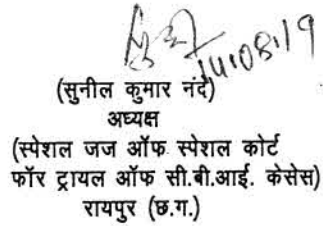 14/08/19
(सुनील कुमार नंदे)
अध्यक्ष
(स्पेशल जज ऑफ स्पेशल कोर्ट
फॉर ट्रायल ऑफ सी.बी.आई. केसेस)
रायपुर (छ.ग.)